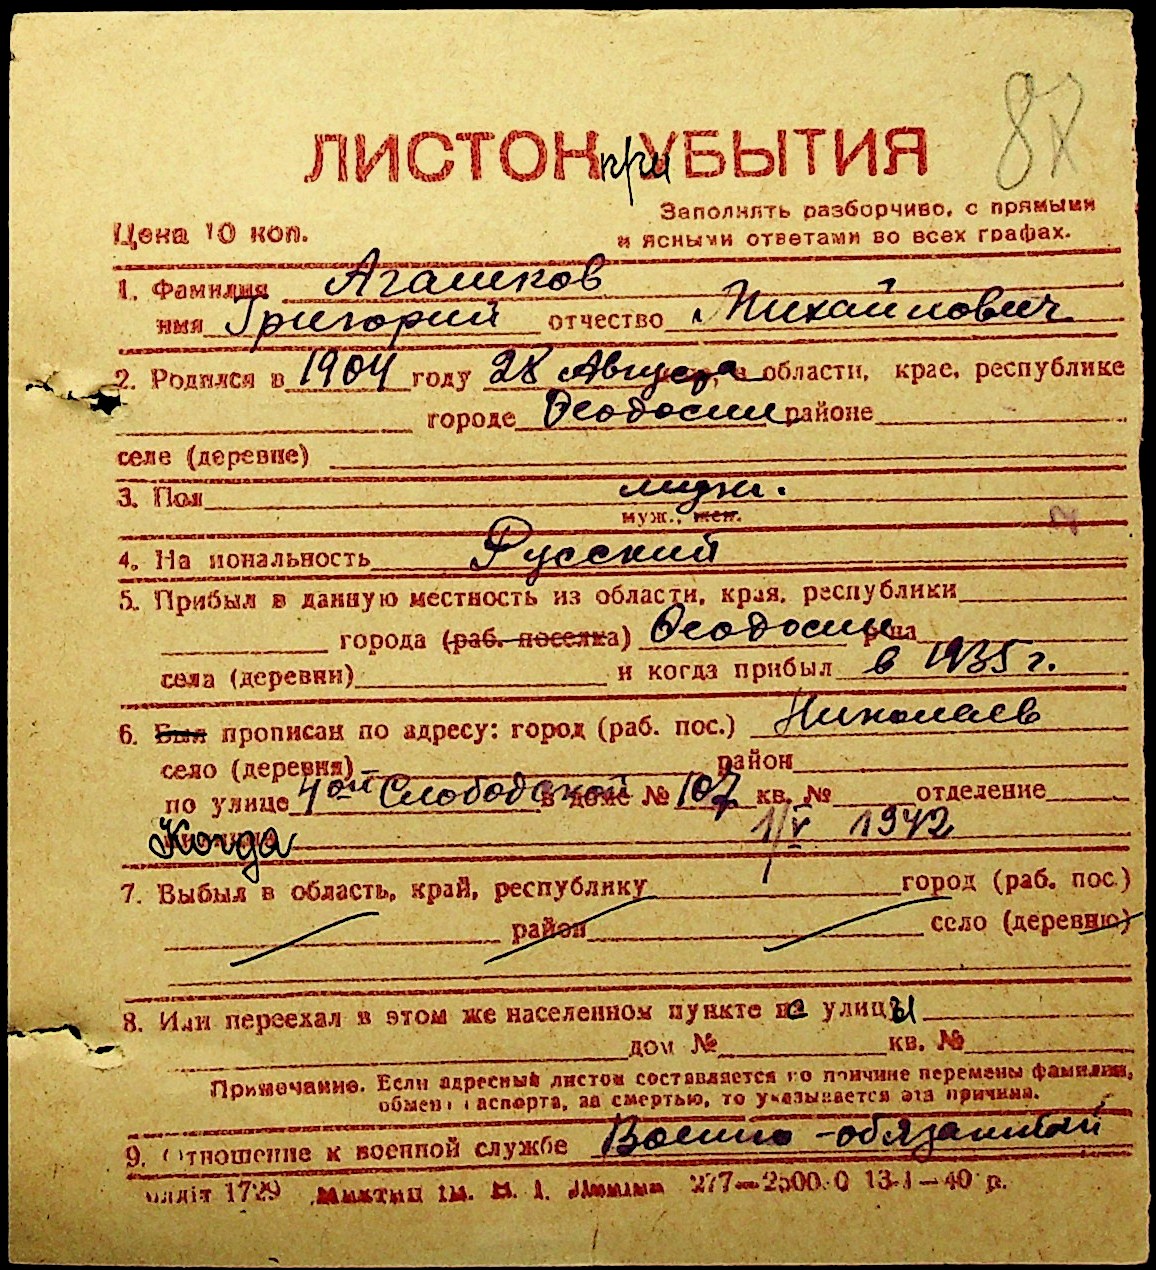 87
ЛИСТОК при УБЫТИЯ
Заполнять разборчиво, с прямыми
и ясными ответами во всех графах.
Цена 10 коп.
1. Фамилия Агашков
имя Григорий отчество Михайлович
2. Родился в 1904 году 28 Августа, в области, крае, республике
городе Феодосии районе
селе (деревне)
3. Пол муж.
муж., жен.
4. На иональность Русский
5. Прибыл в данную местность из области, края, республики
города (раб. поселка) Феодосии р-на
села (деревни) и когда прибыл в 1935 г.
6. Был прописан по адресу: город (раб. пос.) Николаев
село (деревня) район
по улице 4ой Слободской в доме № 107 кв. № отделение
Когда 1/V 1942
7. Выбыл в область, край, республику город (раб. пос.)
район село (деревню)
8. Или переехал в этом же населенном пункте с улицы
дом № кв. №
Примечание. Если адресный листок составляется по причине перемены фамилии,
обмена паспорта, за смертью, то указывается эта причина.
9. Отношение к военной службе Военно-обязанный
1729 277—2500.0 13-I—40 р.